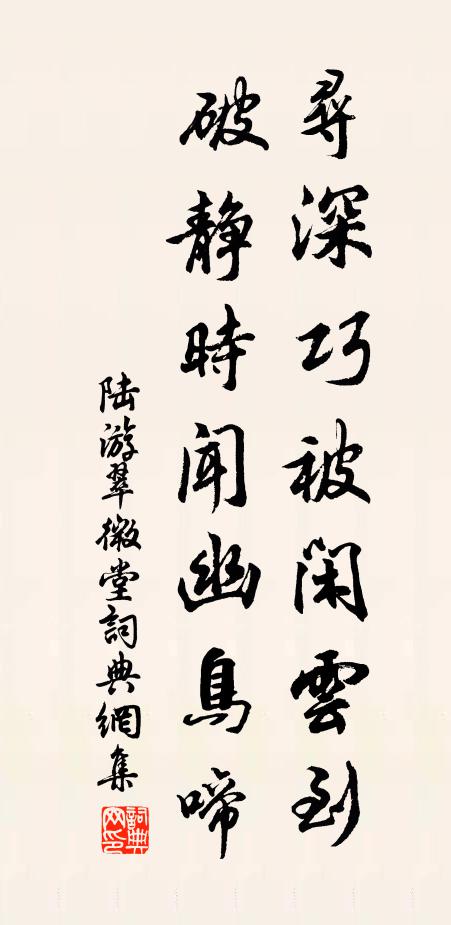 尋深巧被閑雲到
破静時聞幽鳥啼
陆游翠微堂詞典網集
詞典网印